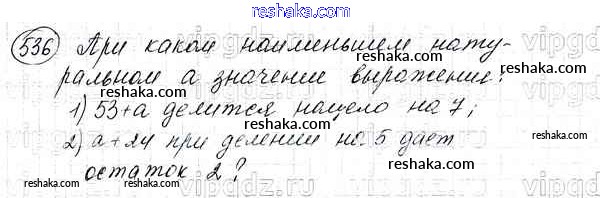 reshaka.com
536 При каком наименьшем нату-
ральном а значение выражение:
1) 53+а делится нацело на 7;
2) а+24 при делении на 5 дает
остаток 2?
reshaka.com
vipgdz.com